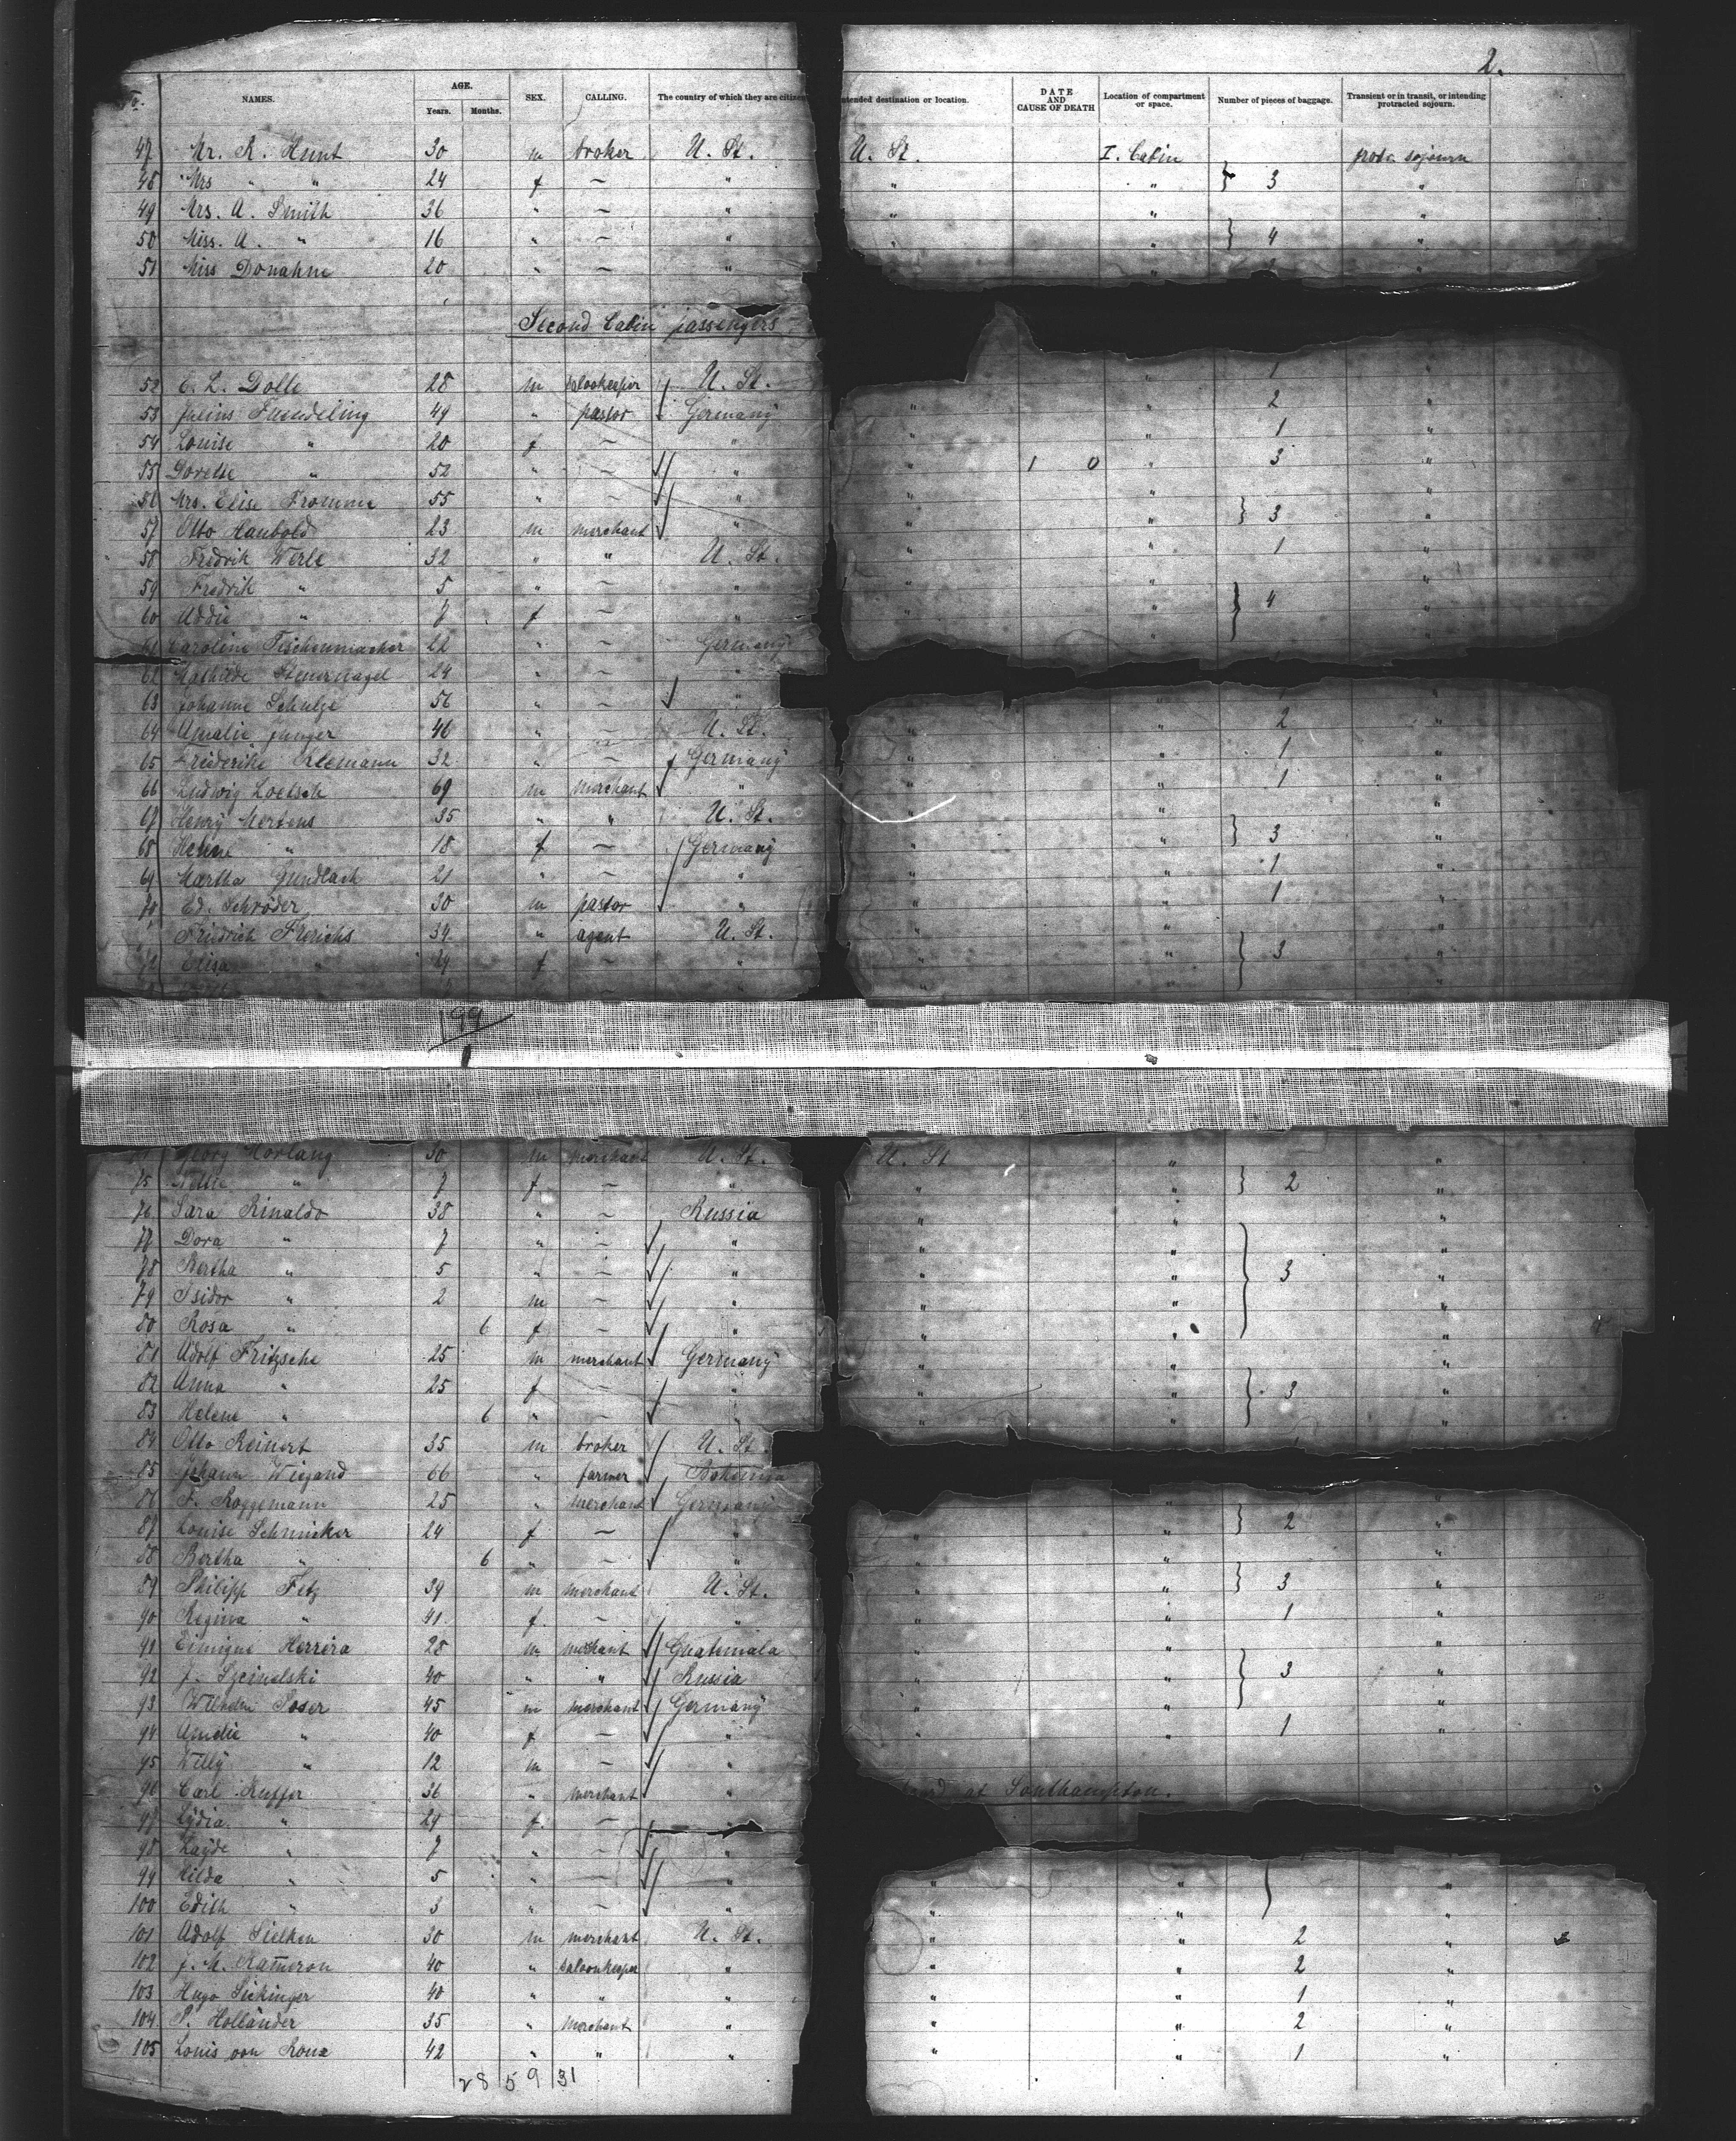 2.
No. NAMES. AGE. Years. Months. SEX. CALLING. The country of which they are citizens Intended destination or location. DATE AND CAUSE OF DEATH Location of compartment or space. Number of pieces of baggage. Transient or in transit, or intending protracted sojourn.
47 Mr. R. Hunt 30 m broker U. St. U. St. I. Cabin protr. sojourn
48 Mrs " " 24 f — " " " } 3 "
49 Mrs. A. Smith 36 " — " " " "
50 Miss. A. " 16 " — " " " } 4 "
51 Miss Donahue 20 " — " " "
Second Cabin passengers
52 C. L. Dolle 28 m U. St. " 1 "
53 Julius 49 " pastor Germany " " 2 "
54 Louise " 20 f — " " " 1 "
55 " 52 " — " " 1 0 " 3 "
56 Mrs. Elise Fromme 55 " — " " " "
57 Otto Haubold 23 m merchant " " " } 3 "
58 Fredrik Werle 32 " " U. St. " " 1 "
59 Fredrik " 5 " — " " " "
60 Addie " 7 f — " " " } 4 "
61 Caroline Tischenmacher 22 " — Germany "
62 Mathilde Steuernagel 24 " — "
63 Johanne Schulze 56 " — " " "
64 Amalie Junger 46 " — U. St. " " 2 "
65 Friderike 32 " — Germany " 1 "
66 Ludwig Loelsch 69 m merchant " " " 1 "
67 Henry Mertens 35 " " U. St. " " "
68 Helene " 18 f — Germany " " } 3 "
69 Martha Gundlach 21 " — " " " 1 "
70 Ed. Schröder 30 m pastor " " " 1 "
Friedrich Frerichs 34 " agent U. St. " " "
72 Elisa " f — " " " } 3 "
199
1
Georg Horlang 30 m merchant U. St. U. St " "
75 Nellie " 7 f — " " " } 2 "
76 Sara Rinaldo 38 " — Russia " " "
77 Dora " 7 " — " " " "
78 Bertha " 5 " — " " " } 3 "
79 Isidor " 2 m — " " " "
80 Rosa " 6 f — " " " "
81 Adolf Fritzsche 25 m merchant Germany " " "
82 Anna " 25 f — " " " } 3 "
83 Helene " 6 " — " " " "
84 Otto Reinert 35 m broker U. St.
85 Johann Wiegand 66 " farmer Bohemia
86 F. Roggemann 25 " merchant Germany " "
87 Louise Schmicker 24 f — " " " } 2 "
88 Bertha " 6 " — " " " "
89 Philipp Fetz 39 m merchant U. St. " " } 3 "
90 Regina " 41 f — " " " 1 "
91 Herrera 28 m merchant Guatemala " " "
92 J. 40 " " Russia " " } 3 "
93 Wilhelm Poser 45 m merchant Germany " " "
94 Amelie " 40 f — " " " 1 "
95 Willy " 12 m — "
96 Carl Kuffer 36 " merchant " at Southampton.
97 Lydia " 29 f — "
98 " 7 " — "
99 Hilda " 5 " — " " " "
100 Edith " 3 " — " " " "
101 Adolf Sielken 30 m merchant U. St. " " 2 "
102 J. M. Kameron 40 " saloonkeeper " " " 2 "
103 Hugo Sickinger 40 " " " " " 1 "
104 P. Holländer 35 " merchant " " " 2 "
105 Louis von Roux 42 " " " " " 1 "
28 5 9 31